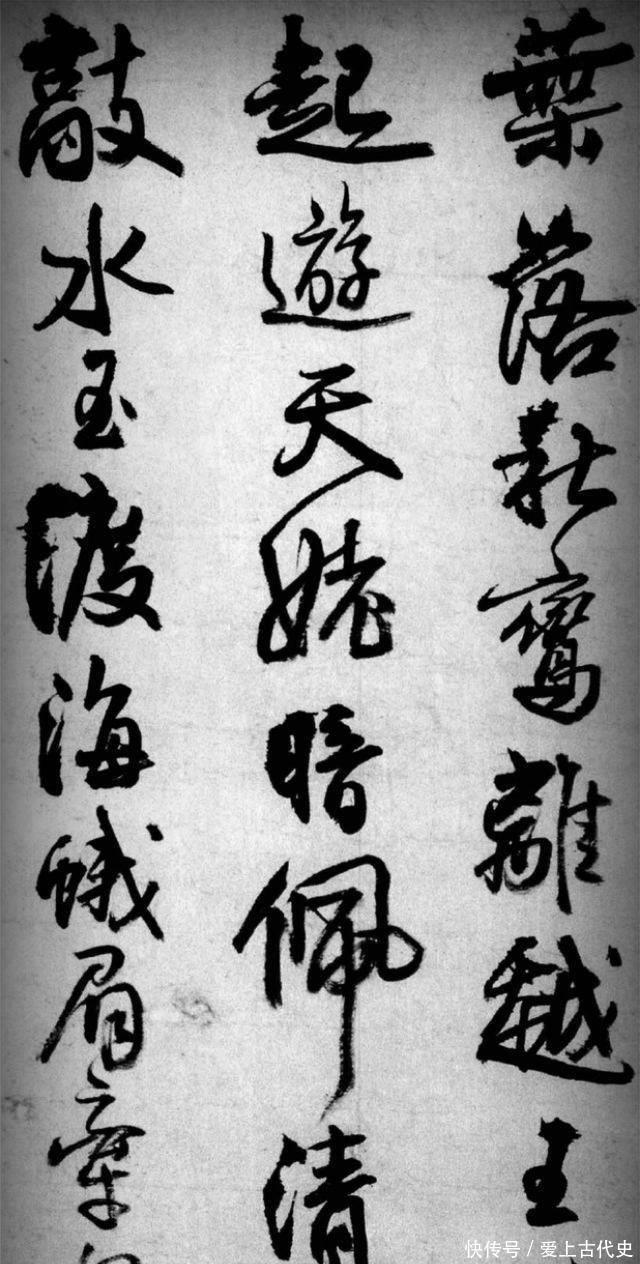 葉落秋鸞離越王
起遊天姥暗佩清
敲水玉渡海蛾眉牽
快传号 / 爱上古代史